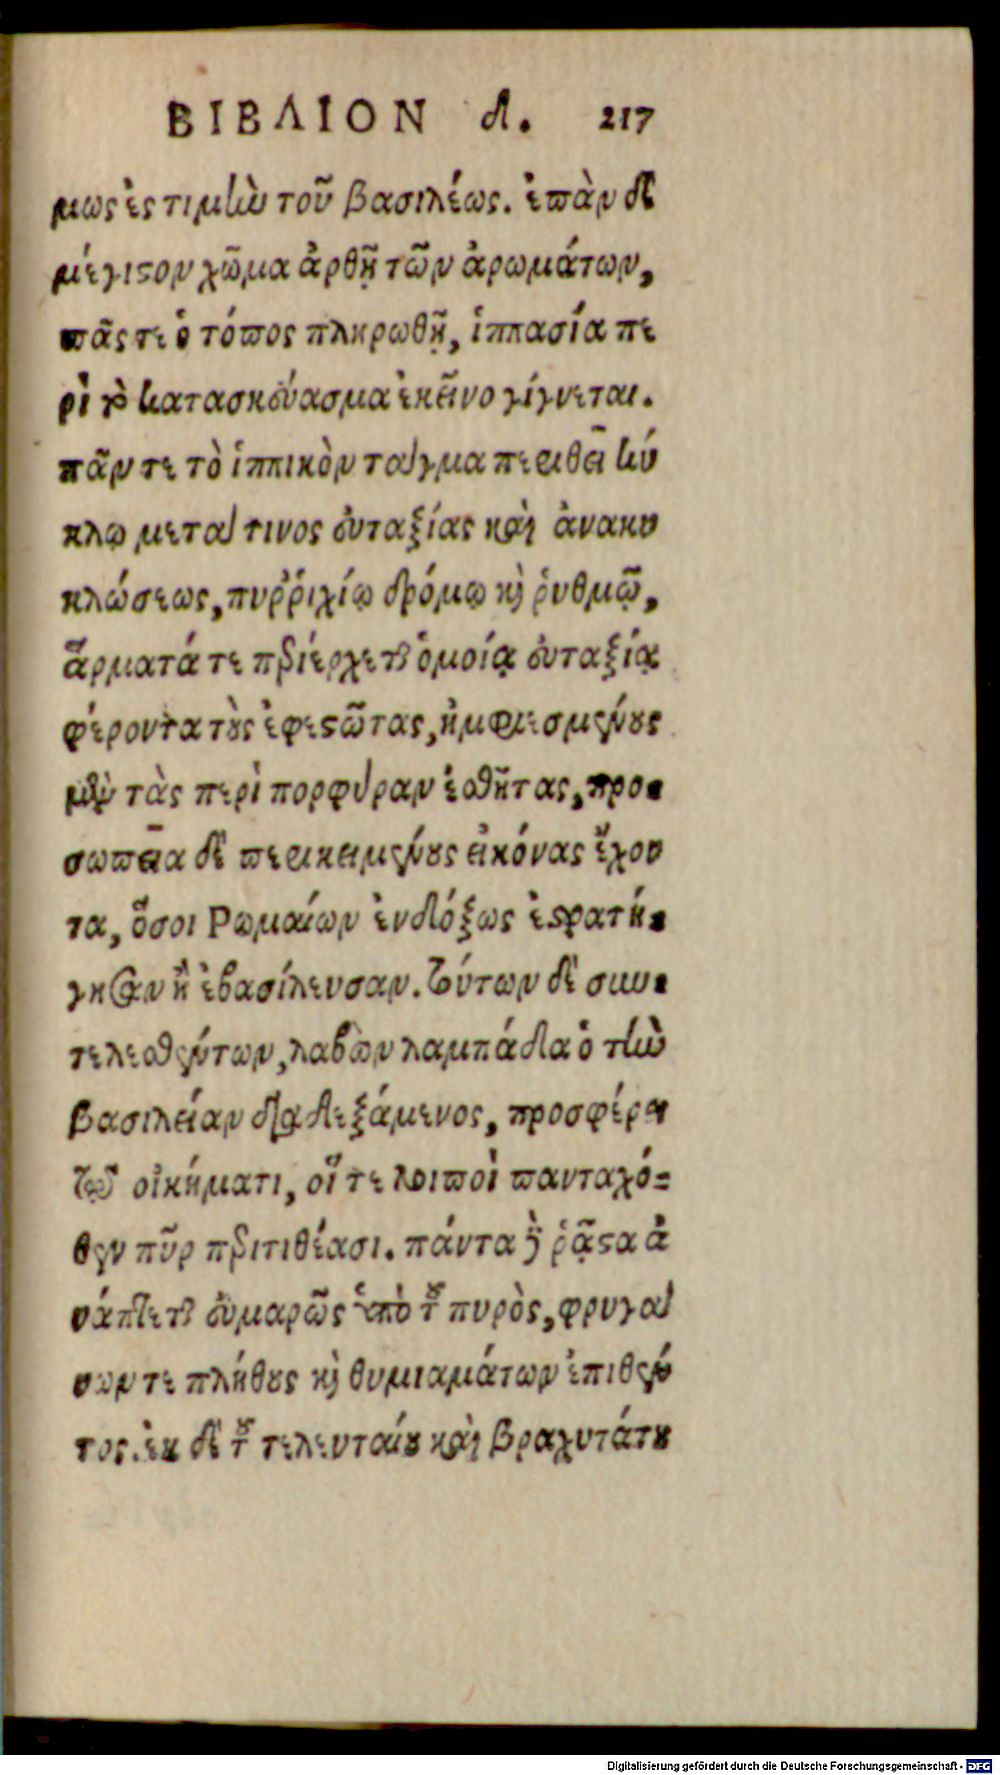 ΒΙΒΛΙΟΝ δ. 217
μως ἐς τιμὴν τοῦ βασιλέως. ἐπὰν δὲ
μέγιστον χῶμα ἀρθῇ τῶν ἀρωμάτων,
πᾶς τε ὁ τόπος πληρωθῇ, ἱππασία πε
ρὶ τὸ κατασκεύασμα ἐκεῖνο γίγνεται.
πᾶν τε τὸ ἱππικὸν τάγμα περιθεῖ κύ
κλῳ μετά τινος εὐταξίας καὶ ἀνακυ
κλώσεως, πυῤῥιχίῳ δρόμῳ καὶ ῥυθμῷ,
ἅρματά τε περιέρχεται ὁμοίᾳ εὐταξίᾳ
φέροντα τοὺς ἐφεστῶτας, ἠμφιεσμένους
μὲν τὰς περὶ πορφύραν ἐσθῆτας, προ-
σωπεῖα δὲ περικειμένους εἰκόνας ἔχον
τα, ὅσοι Ρωμαίων ἐνδόξως ἐστρατή-
γησαν ἢ ἐβασίλευσαν. τούτων δὲ συν-
τελεσθέντων, λαβὼν λαμπάδα ὁ τὴν
βασιλείαν διαδεξάμενος, προσφέρει
τῷ οἰκήματι, οἵ τε λοιποὶ πανταχό-
θεν πῦρ περιτιθέασι. πάντα δὲ ῥᾷστα ἀ
νάπτεται εὐμαρῶς ὑπὸ τοῦ πυρὸς, φρυγά
νων τε πλήθους καὶ θυμιαμάτων ἐπιθέν
τος. ἐκ δὲ τοῦ τελευταίου καὶ βραχυτάτου
Digitalisierung gefördert durch die Deutsche Forschungsgemeinschaft - DFG